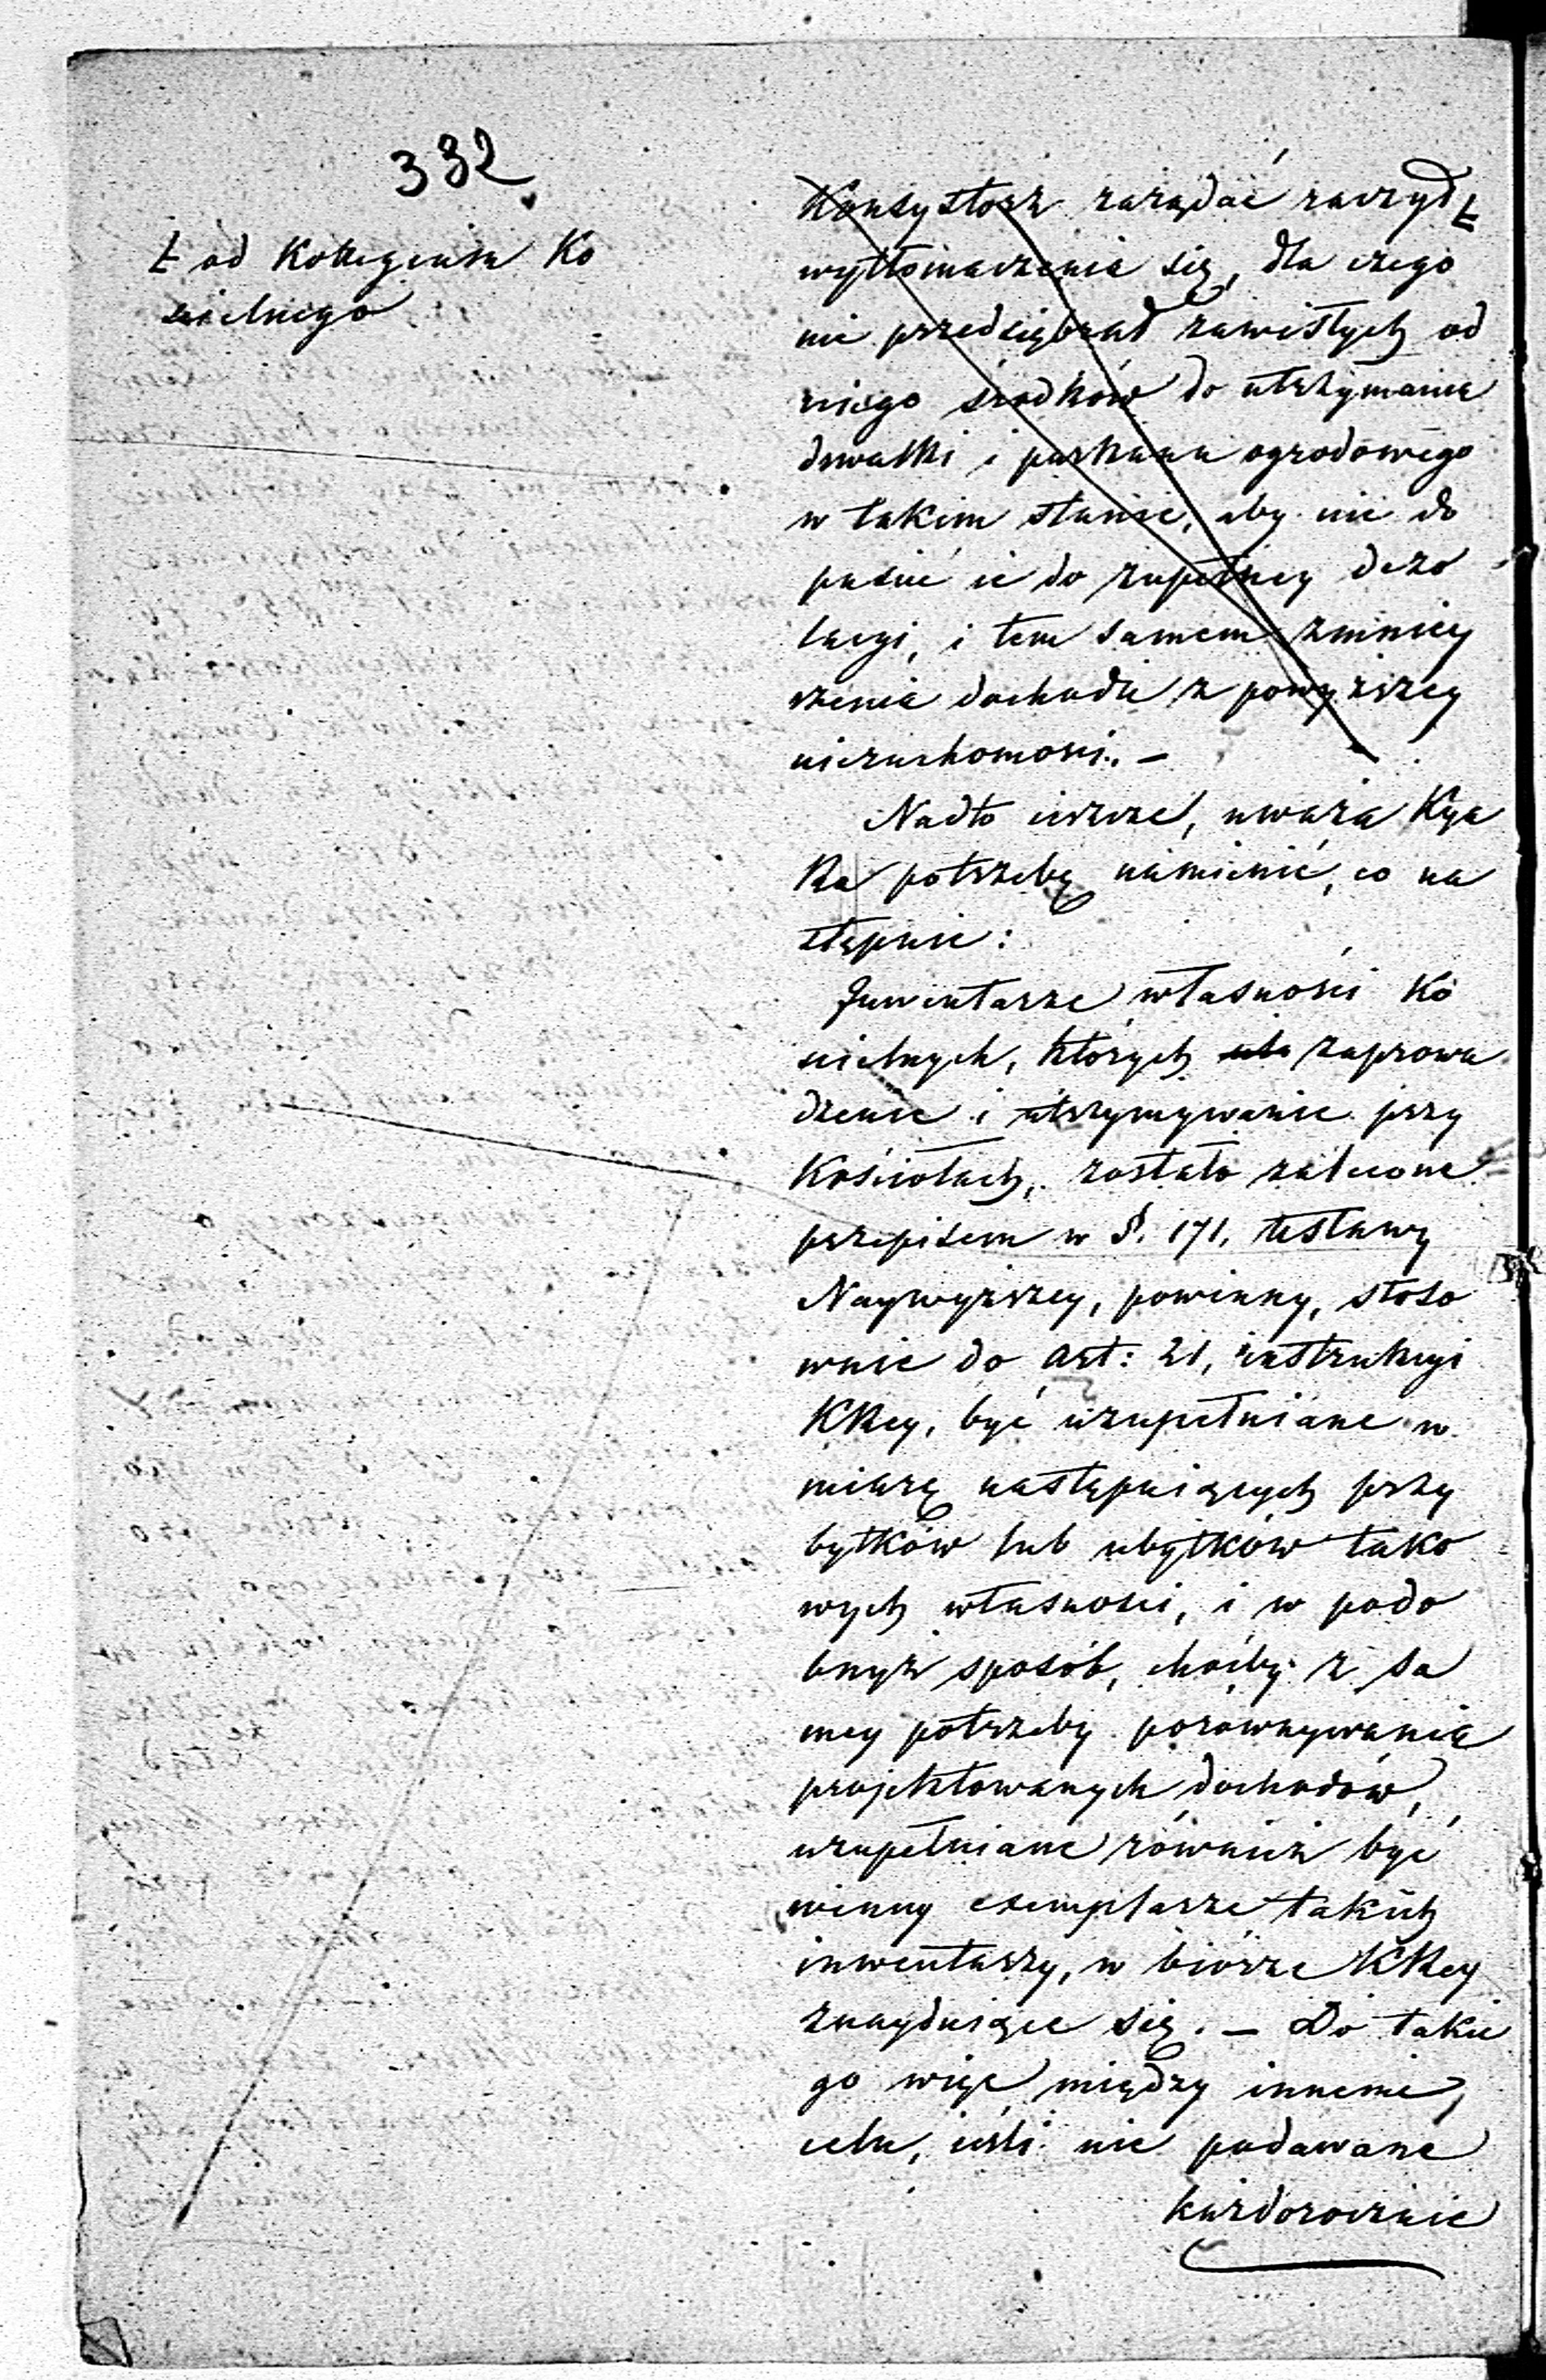 332
Ł od Kollegium Ko
ścielnego
Konsystorz zarządać raczył Ł
wytłomaczenia się, dla czego
nie przedsiębrał zawisłych od
niego środków do utrzymania
dswałki i parkanu ogrodowego
w takim stanie, aby nie do
puścić ie do zupełney dezo
lacyi, i tem samem zmniey
szenia dochodu z powyższey
nieruchomości. –
Nadto ieszcze, uważa Kya
Ra potrzebę namienić, co na
stępuie:
Inwentarze własności Ko
ścielnych, których zaprowa
dzenie i utrzymywanie przy
Kościołach, zostało zalecone
przepisem w §. 171. Ustawy
Naywyższey, powinny, stoso
wnie do art: 21, instrukcyi
KKey, być uzupełniane w
miarę następuiących przy
bytków lub ubytków tako
wych własności, i w podo
bnyż sposób, choćby z sa
mey potrzeby porównywania
projektowanych dochodów,
uzupełniane również być
winny exemplarze takich
inwentarzy, w biórze KKey
znayduiące się. – Do takie
go więc między innemi,
celu, ieśli nie podawane
każdorocznie